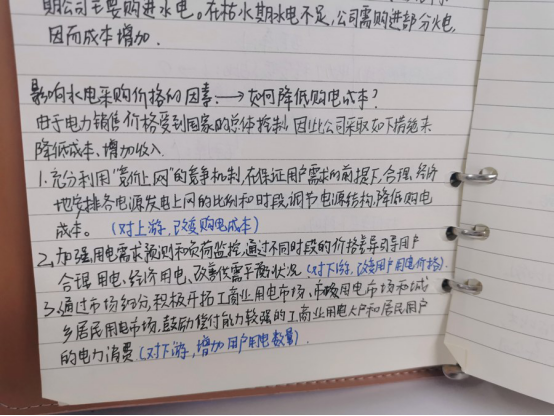 期公司主要购进水电。在枯水期水电不足,公司需购进部分火电,
因而成本增加.
影响水电采购价格的因素.→如何降低购电成本?
由于电力销售价格受到国家的总体控制,因此公司采取如下措施来
降低成本、增加收入.
1.充分利用"竞价上网"的竞争机制,在保证用户需求的前提下,合理、经济
地安排各电源发电上网的比例和时段,调节电源结构,降低购电
成本。(对上游,改变购电成本)
2.加强用电需求预测和负荷监控,通过不同时段的价格差异引导用户
合理用电、经济用电、改善供需平衡状况(对下游,改变用户用电价格).
3.通过市场细分,积极开拓工商业用电市场、市政用电市场和城
乡居民用电市场,鼓励偿付能力较强的工商业用电大户和居民用户
的电力消费(对下游,增加用户用电数量).